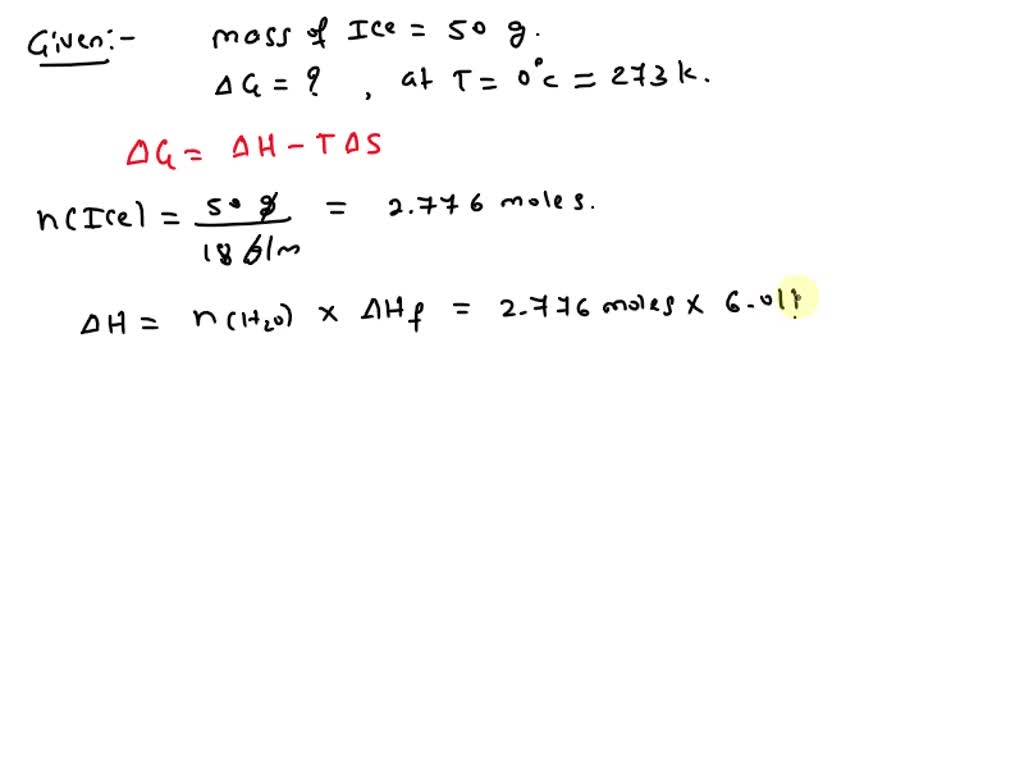 Given:- mass of Ice = 50 g.
ΔG = ? , at T = 0°c = 273 k.
ΔG = ΔH - TΔS
n(Ice) = 50 g / 18 g/m = 2.776 moles.
ΔH = n(H₂O) × ΔHf = 2.776 moles × 6.01